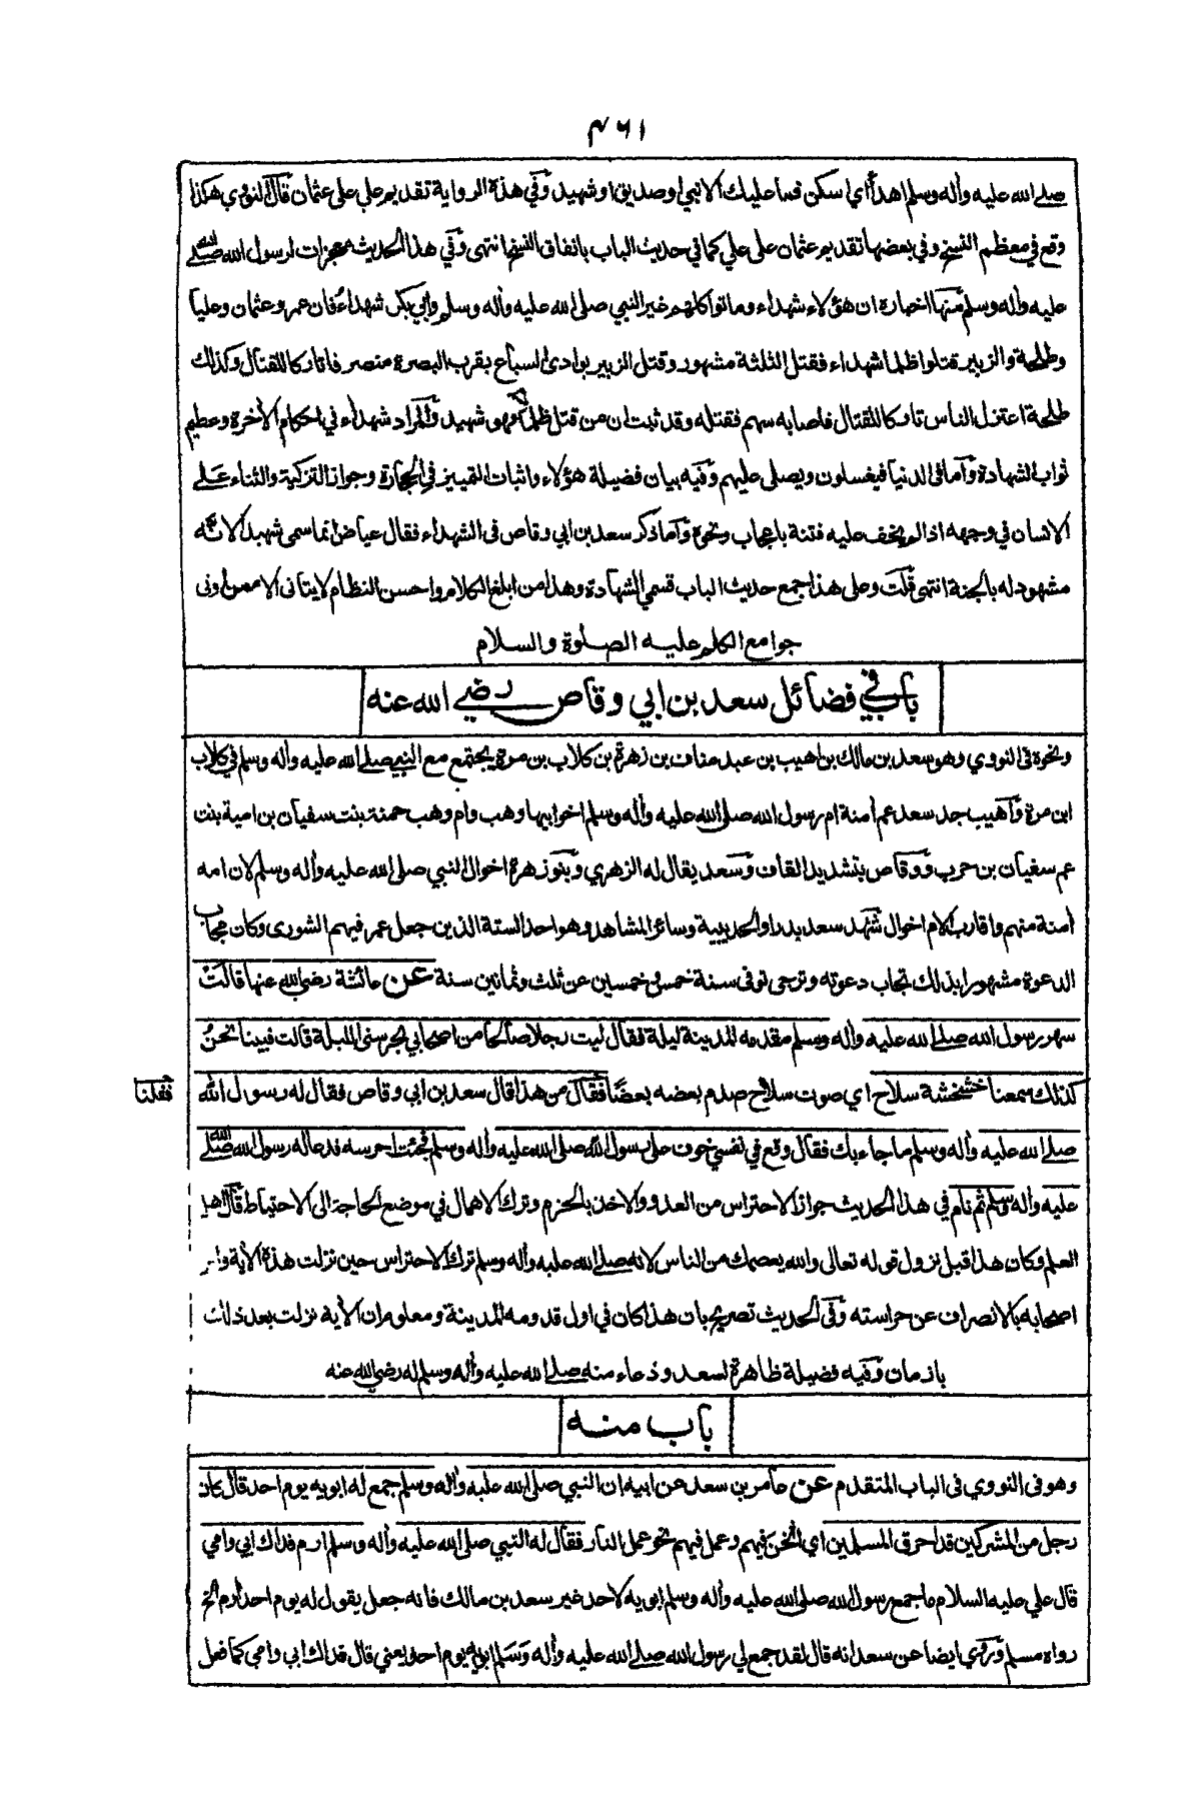 ٤٦١
صلى الله عليه وأله وسلم اهدأ اي اسكن فما عليك الا نبي او صديق او شهيد وفي هذة الرواية تقديم علي على عثمان قال النووي هكذا
وقع في معظم النسخ وفي بعضها تقديم عثمان على علي كما في حديث الباب باتفاق النسخ انتهى وفي هذا الحديث معجزات لرسول الله صلى الله
عليه واله وسلم منها اخباره ان هؤلاء شهداء وماتوا كلهم غير النبي صلى الله عليه وأله وسلم وابي بكر شهداء فان عمر وعثمان وعليا
وطلحة والزبير قتلوا ظلما شهداء فقتل الثلثة مشهور وقتل الزبير بوادى السباع بقرب البصرة منصرفا تاركا للقتال وكذلك
طلحة اعتزل الناس تاركا للقتال فاصابه سهم فقتله وقد ثبت ان من قتل ظلما فهو شهيد والمراد شهداء في احكام الأخرة وعظيم
ثواب الشهادة وأما في الدنيا فيغسلون ويصلى عليهم وفيه بيان فضيلة هؤلاء واثبات التمييز في الحجارة وجواز التزكية والثناء على
الانسان في وجهه اذا لم يخف عليه فتنة باعجاب ونحوه وأما ذكر سعد بن ابي وقاص فى الشهداء فقال عياض انما سمى شهيدا لانه
مشهود له بالجنة انتهى قلت وعلى هذا جمع حديث الباب قسمي الشهادة وهذا من ابلغ الكلام واحسن النظام لا يتاتى الا ممن اوتى
جوامع الكلم عليه الصلوة والسلام
باب في فضائل سعد بن ابي وقاص رضي الله عنه
ونحوه فى النووي وهو سعد بن مالك بن اهيب بن عبد مناف بن زهرة بن كلاب بن مرة يجتمع مع النبي صلى الله عليه وأله وسلم في كلاب
ابن مرة وأهيب جد سعد عم أمنة ام رسول الله صلى الله عليه وأله وسلم اخو ابيها وهب وام وهب حمنة بنت سفيان بن امية بنت
عم سفيان بن حرب ووقاص بتشديد القاف وسعد يقال له الزهري وبنو زهرة اخوال النبي صلى الله عليه وأله وسلم لان امه
أمنة منهم واقارب الام اخوال شهد سعد بدرا والحديبية وسائر المشاهد وهو احد الستة الذين جعل عمر فيهم الشورى وكان مجاب
الدعوة مشهورا بذلك تجاب دعوته وترجى توفى سنة خمس وخمسين عن ثلث وثمانين سنة عن عائشة رضي الله عنها قالت
سهر رسول الله صلى الله عليه وأله وسلم مقدمه المدينة ليلة فقال ليت رجلا صالحا من اصحابي يحرسنى الليلة قالت فبينا نحن
كذلك سمعنا خشخشة سلاح اي صوت سلاح صدم بعضه بعضا فقال من هذا قال سعد بن ابي وقاص فقال له رسول الله
فقلنا
صلى الله عليه وأله وسلم ما جاء بك فقال وقع في نفسي خوف على رسول الله صلى الله عليه وأله وسلم فجئت احرسه فدعا له رسول الله صلى الله
عليه واله وسلم ثم نام في هذا الحديث جواز الاحتراس من العدو والاخذ بالحزم وترك الاهمال في موضع الحاجة الى الاحتياط قال اهل
العلم وكان هذا قبل نزول قوله تعالى والله يعصمك من الناس لانه صلى الله عليه وأله وسلم ترك الاحتراس حين نزلت هذة الأية وامر
اصحابه بالانصراف عن حراسته وفى الحديث تصريح بان هذا كان في اول قدومه المدينة ومعلوم ان الأية نزلت بعد ذلك
بازمان وفيه فضيلة ظاهرة لسعد ودعاء منه صلى الله عليه وأله وسلم له رضي الله عنه
باب منه
وهو فى النووي فى الباب المتقدم عن عامر بن سعد عن ابيه ان النبي صلى الله عليه وأله وسلم جمع له ابويه يوم احد قال كان
رجل من المشركين قد احرق المسلمين اي اثخن فيهم وعمل فيهم نحو عمل النار فقال له النبي صلى الله عليه وأله وسلم ارم فداك ابي وامي
قال علي عليه السلام ما جمع رسول الله صلى الله عليه وأله وسلم ابويه لاحد غير سعد بن مالك فانه جعل يقول له يوم احد ارم الخ
رواه مسلم وروي ايضا عن سعد انه قال لقد جمع لي رسول الله صلى الله عليه وأله وسلم ابويه يوم احد يعني قال فداك ابي وامي كما فعل